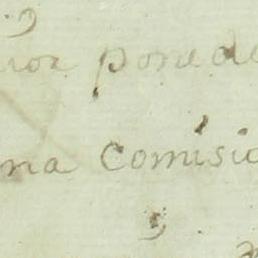 ñor ponede
na comisio